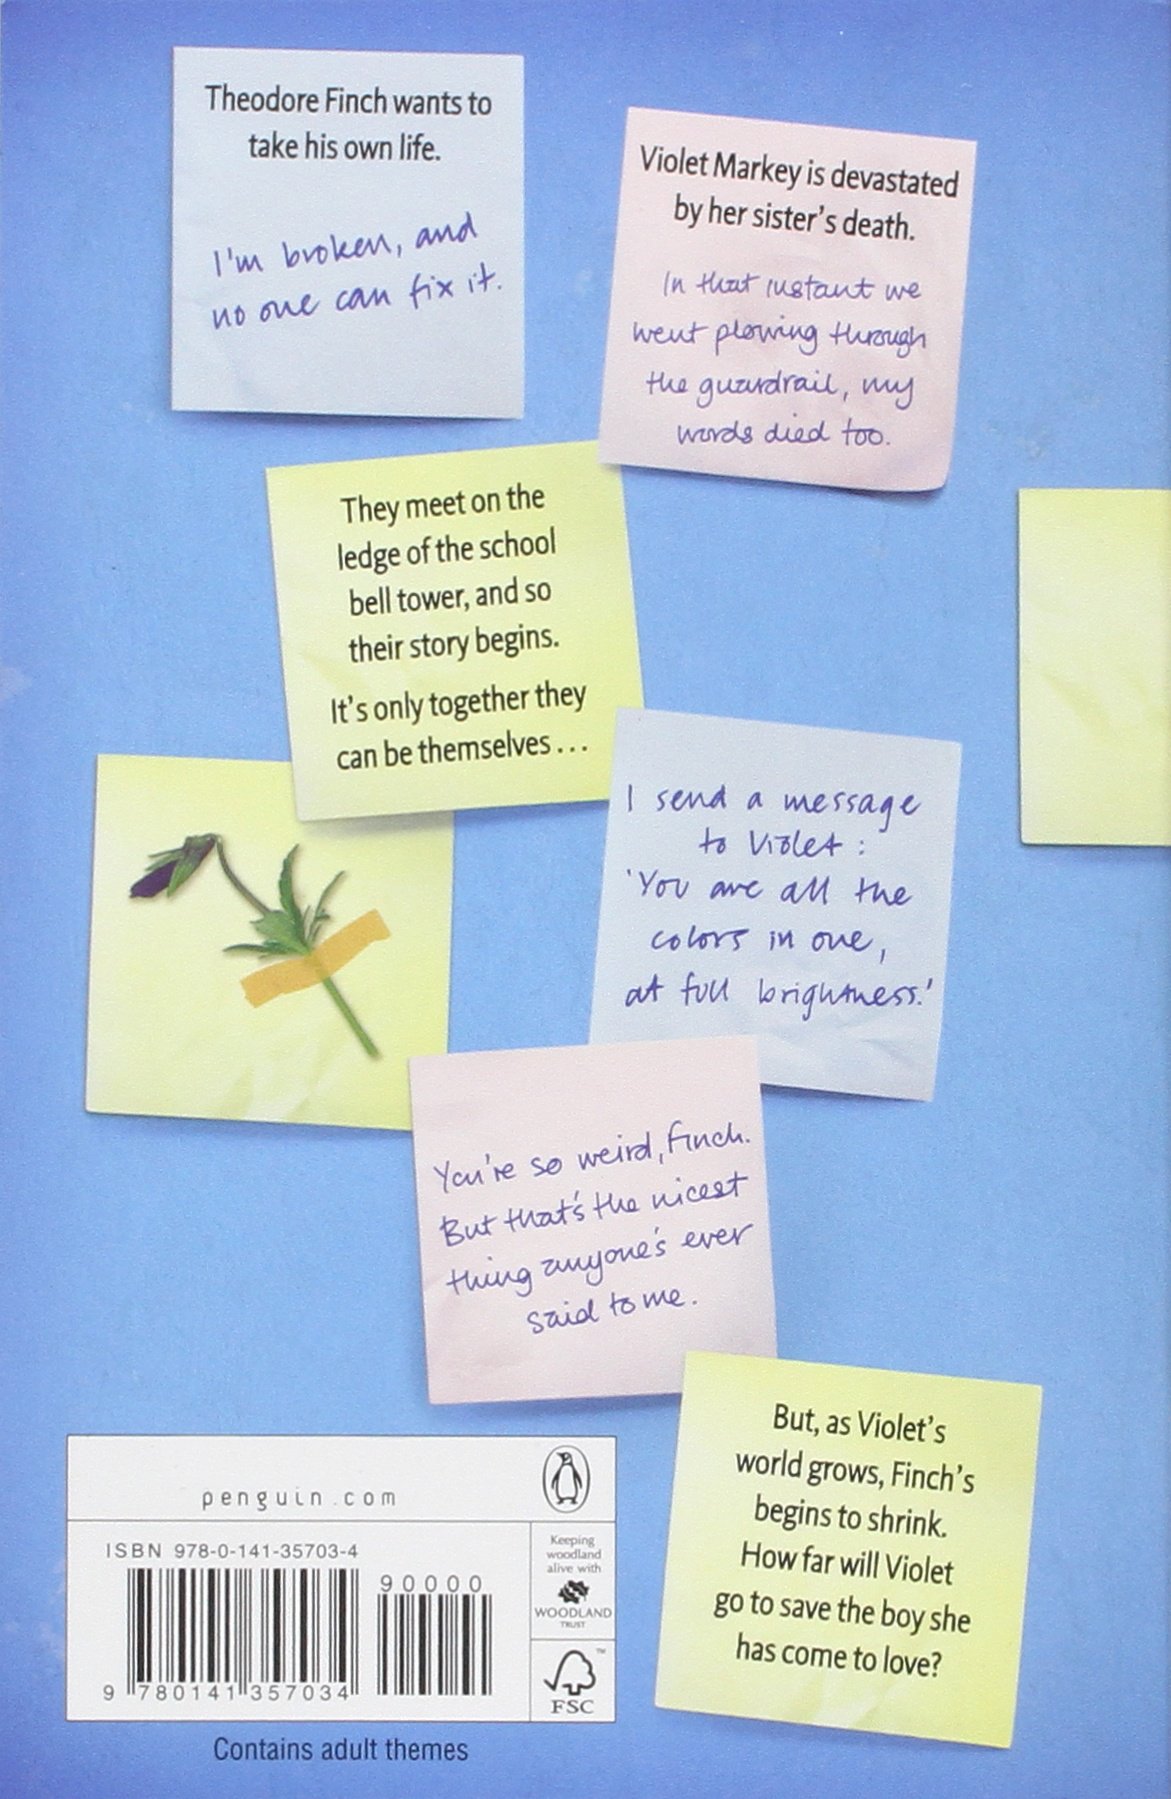 Theodore Finch wants to
take his own life.
I'm broken, and
no one can fix it.
Violet Markey is devastated
by her sister's death.
In that instant we
went plowing through
the guardrail, my
words died too.
They meet on the
ledge of the school
bell tower, and so
their story begins.
It's only together they
can be themselves ...
I send a message
to Violet:
'You are all the
colors in one,
at full brightness.'
You're so weird, Finch.
But that's the nicest
thing anyone's ever
said to me.
But, as Violet's
world grows, Finch's
begins to shrink.
How far will Violet
go to save the boy she
has come to love?
penguin.com
ISBN 978-0-141-35703-4
90000
9 780141 357034
Keeping
woodland
alive with
WOODLAND
TRUST
FSC
™
Contains adult themes